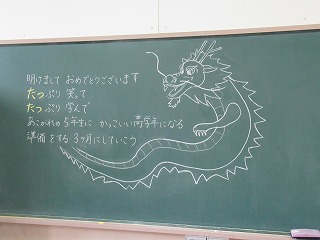 明けまして おめでとうございます
たっぷり 笑って
たっぷり 学んで
あこがれの5年生に かっこいい高学年になる
準備をする3ヶ月にしていこう